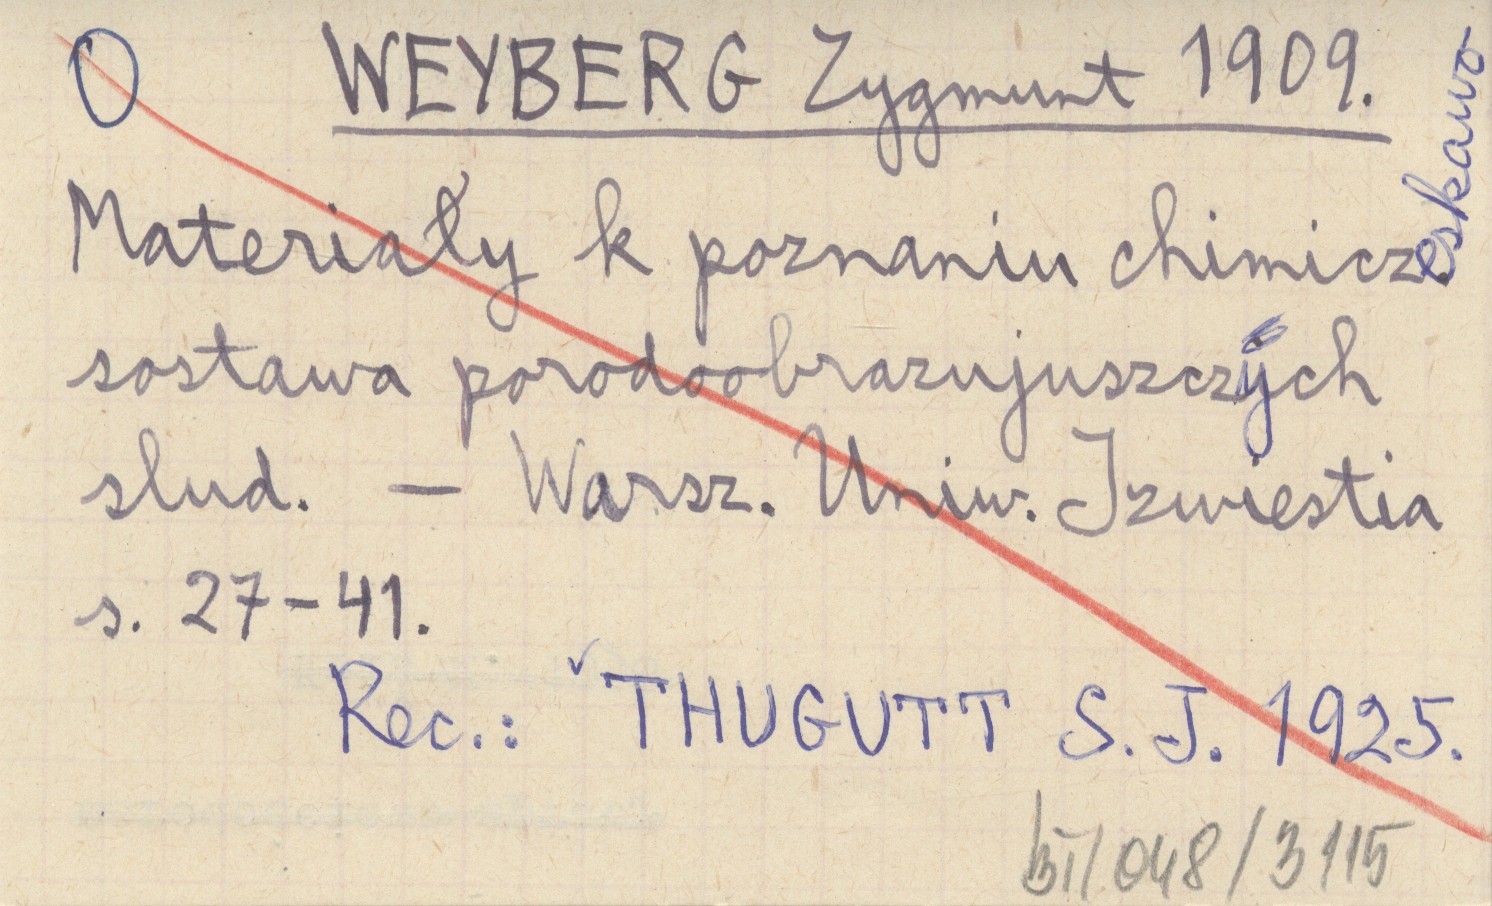 O WEYBERG Zygmunt 1909.
Materiały k poznaniu chimiczeskawo
sostawa porodoobrazujuszczych
slud. – Warsz. Uniw. Izwiestia
s. 27-41.
Rec.: ✓THUGUTT S. J. 1925.
/048/3115